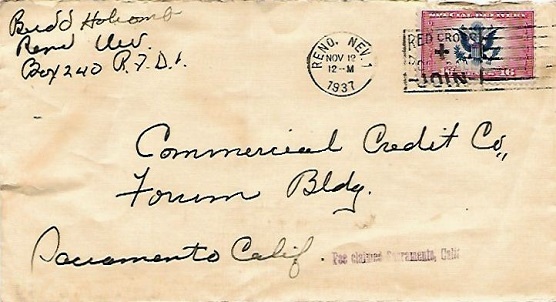 Budd Holcomb
Reno Nev.
Box 240 R.F.D.1.
RENO, NEV. 1
NOV 12
12-M
1937
RED CROSS
JOIN
16
Commercial Credit Co.,
Forum Bldg.
Sacramento Calif.
Fee claimed Sacramento, Calif